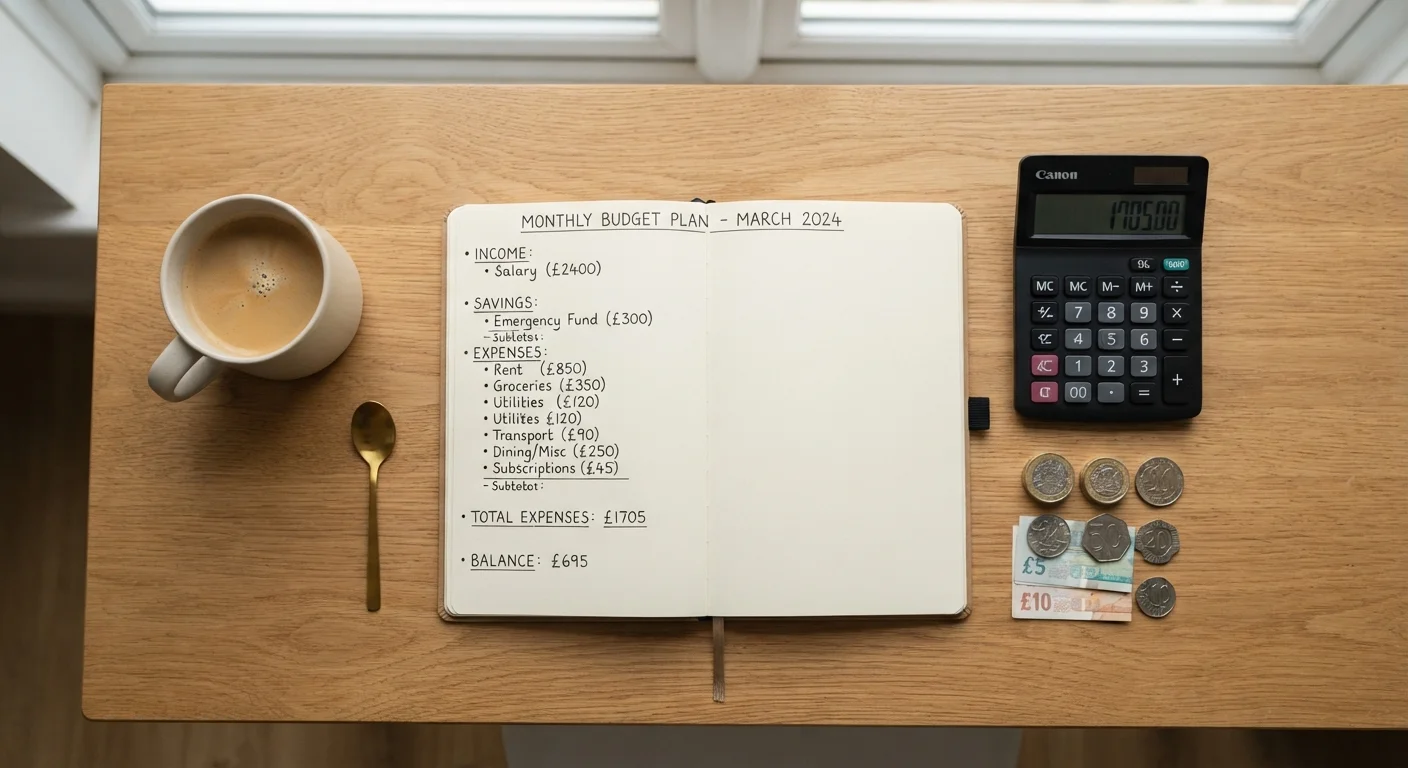 MONTHLY BUDGET PLAN - MARCH 2024
• INCOME:
• Salary (£2400)
• SAVINGS:
• Emergency Fund (£300)
- Subtotet:
• EXPENSES:
• Rent (£850)
• Groceries (£350)
• Utilities (£120)
• Utilites £120)
• Transport (£90)
• Dining/Misc (£250)
• Subscriptions (£45)
- Subtotot:
• TOTAL EXPENSES: £1705
• BALANCE: £695
Canon
170500
MC MC M- M+ ÷
7 8 9 ×
4 5 6 −
1 2 3 +
00 · =
50 20
£5
£10